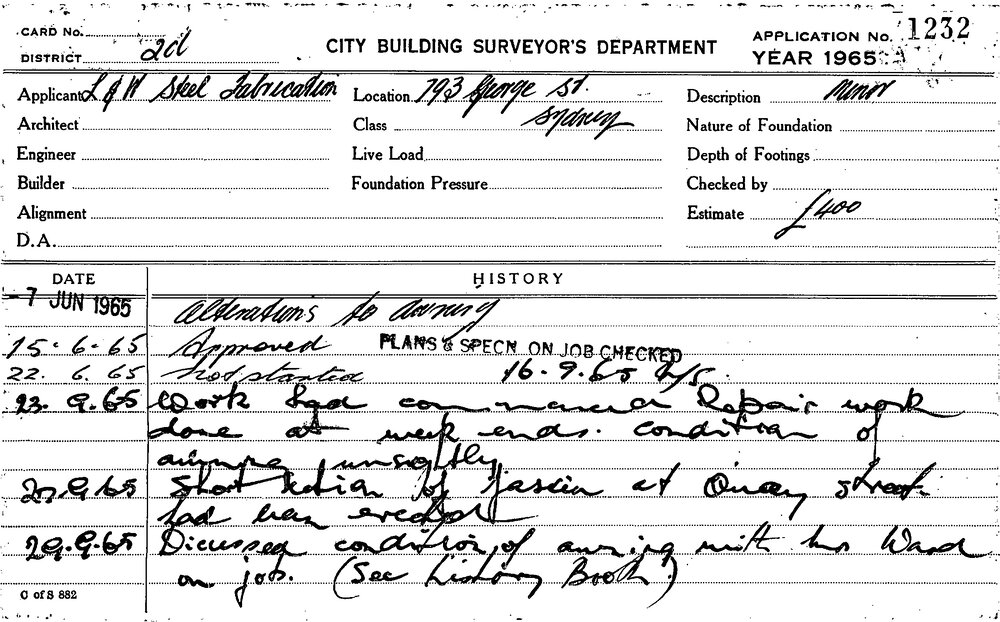 CARD No.
DISTRICT 2d
CITY BUILDING SURVEYOR'S DEPARTMENT
APPLICATION No. 1232
YEAR 1965
Applicant L & W Steel Fabrication
Location 793 George St.
Sydney
Description Minor
Architect
Class
Nature of Foundation
Engineer
Live Load
Depth of Footings
Builder
Foundation Pressure
Checked by
Alignment
Estimate £400
D.A.
DATE
HISTORY
-7 JUN 1965 Alterations to awning
15.6.65 Approved PLANS & SPECN ON JOB CHECKED
22.6.65 Not started 16.9.65
23.9.65 Work had commenced Repair work
done at week ends. condition of
awning unsightly
27.9.65 Short section of fascia at Quay street
had been erected
29.9.65 Dicussed condition of awning with Mr Ward
on job. (See History Book)
C of S 882